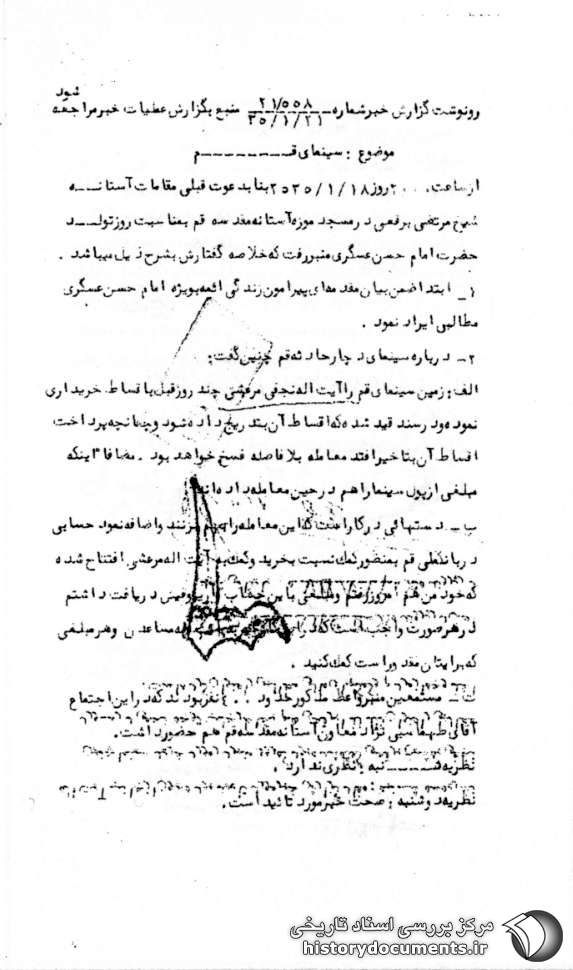 شود
رونوشت گزارش خبر شماره ۲۱/۵۵۸ ۳۵/۱/۲۱ منبع بگزارش عطیات خبر مراجعه
موضوع : سینمای قـــــــــم
از ساعت ۲۰۰۰ روز ۲۵۳۵/۱/۱۸ بنا بدعوت قبلی مقامات آستانــــه
شیخ مرتضی برقعی در مسجد موزه آستانه مقدسه قم بمناسبت روز تولــد
حضرت امام حسن عسگری منبر رفت که خلاصه گفتارش بشرح ذیل میباشد .
۱ـ ابتدا ضمن بیان مقدمه‌ای پیرامون زندگی ائمه بویژه امام حسن عسگری
مطالبی ایراد نمود .
۲ـ درباره سینمای دچار حادثه قم چنین گفت:
الف: زمین سینمای قم را آیت اله نجفی مرعشی چند روز قبل با قساط خریداری
نموده و در سند قید شده که اقساط آن بتدریج داده شود و چنانچه پرداخت
اقساط آن بتاخیر افتد معامله بلافاصله فسخ خواهد بود . مضافا" اینکه
مبلغی از پول سینما را هم در حین معامله داده‌اند
ب ــ دستهائی در کار است که این معامله را بهم بزنند و اضافه نمود حسابی
در بانک ملی قم بمنظور کمک نسبت بخرید و کمک به آیت اله مرعشی افتتاح شده
که خود من هم امروز رفتم و مبلغی باین حساب و فیش دریافت داشتم
در هر صورت واجب است که مساعدت و هر مبلغی
که برایتان مقدور است کمک کنید .
ت ــ مستمعین منبر واعظ مذکور حدود ۴۰۰ نفر بودند که در این اجتماع
آقای طهماسبی نژاد معاون آستانه مقدسه قم هم حضور داشت.
نظریه شـــــنبه : نظری ندارد .
نظریه دوشنبه : صحت خبر مورد تائید است.
مرکز بررسی اسناد تاریخی
historydocuments.ir